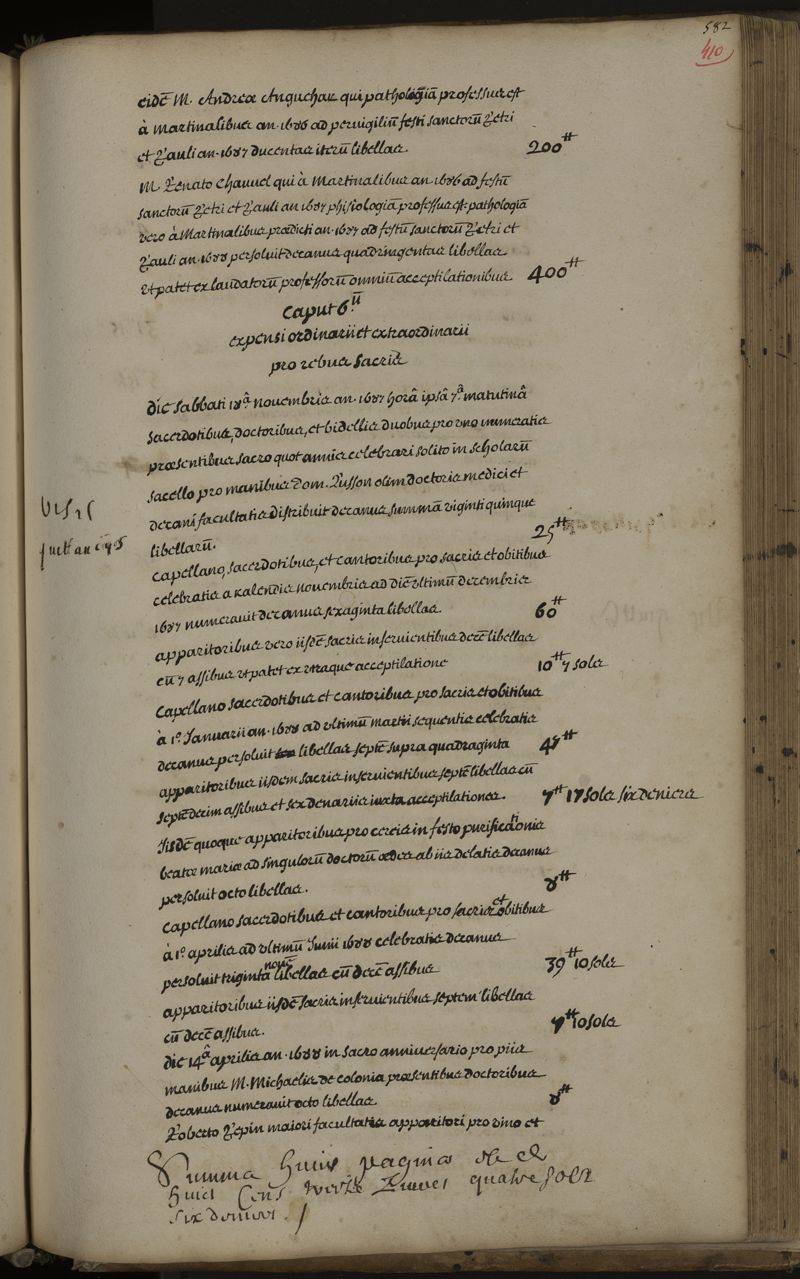 582
410
eidē M. Andreæ Anguehar qui pathologiā professus est
à Martinalibus an. 1686 ad pervigiliū festi sanctorū Petri
et Pauli an. 1687 ducentas iterū libellas. 200tt
M. Renato Chauuel qui à Martinalibus an. 1686 ad festū
sanctorū Petri et Pauli an 1687 phisiologiā professus est pathologiā
vero à Martinalibus prædicti an. 1687 ad festū sanctorū Petri et
Pauli an. 1688 persoluit decanus quadringentas libellas
ut patet ex laudatorū professorū omniū acceptilationibus. 400tt
Caput 6.ū
expensi ordinarii et extraordinarii
pro rebus sacris
die sabbati 18.â nouembris an. 1687 horâ ipsâ 7.â matutinâ
sacerdotibus, doctoribus, et bidellis duobus pro uno numeratis
præsentibus sacro quotannis celebrari solito in scholarū
sacello pro manibus Dom. Russon olim doctoris medici et
decani facultatis distribuit decanus summā viginti quinque
libellarū. 25tt
Capellano, sacerdotibus, et cantoribus pro sacris et obitibus
celebratis a kalendis nouembris ad diē ultimū decembris
1687 numerauit decanus sexaginta libellas. 60tt
apparitoribus vero iisdē sacris inseruientibus decē libellas
cū 7 assibus ut patet ex utraque acceptilatione 10tt 7 sols
Capellano sacerdotibus et cantoribus pro sacris et obitibus
à 1.o Januarii an. 1688 ad ultimū martii sequentis celebratis
decanus persoluit libellas septē supra quadraginta 47tt
apparitoribus iisdem sacris inseruientibus septē libellas cū
septēdecim assibus et sex denariis iuxta acceptilationes. 7tt 17 sols six deniers
Iisdē quoque apparitoribus pro cereis in festo purificationis
beatæ mariæ ad singulorū doctorū ædes ab iis delatis decanus
persoluit octo libellas. 8tt
Capellano sacerdotibus et cantoribus pro sacris et obitibus
à 1.o aprilis ad ultimū Junii 1688 celebratis decanus
persoluit triginta nouē libellas cū decē assibus 39tt 10 sols
apparitoribus iisdē sacris inseruientibus septem libellas
cū decē assibus. 7tt 10 sols
die 14.â aprilis an. 1688 in sacro anniuersario pro piis
manibus M. Michaelis de colonia præsentibus doctoribus
decanus numerauit octo libellas. 8tt
Roberto Pepin maiori facultatis apparitori pro vino et
Summa huius paginæ
huict Cens livres quatre solz
six deniers.